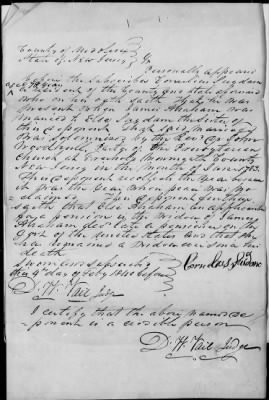 County of Middlesex
State of New Jersey } Ss
Personally appeared
before the subscriber Cornelius
aged 78 years
a resident of the County and State aforesaid
who on his oath saith that he was
present when James Abraham was
married to Elsy the sister of
this deponent that said marriage
was solemnized by the Rev John
Woodhull, Pastor of the Presbyterian
Church at Freehold Monmouth County
New Jersey in the month of June 1783
This deponent recollects the year because
it was the year when peace was pro-
claimed. This deponent further
saith that Elsy Abraham an applicant
for a pension is the widow of James
Abraham decd late a pensioner on the
roll of the United States and that she
has remained a widow ever since his
death
Sworn and subscribed
this 4th day of Feby 1840 before
D. H. Vail Judge
Cornelius
I certify that the above named de-
ponent is a credible person
D. H. Vail Judge